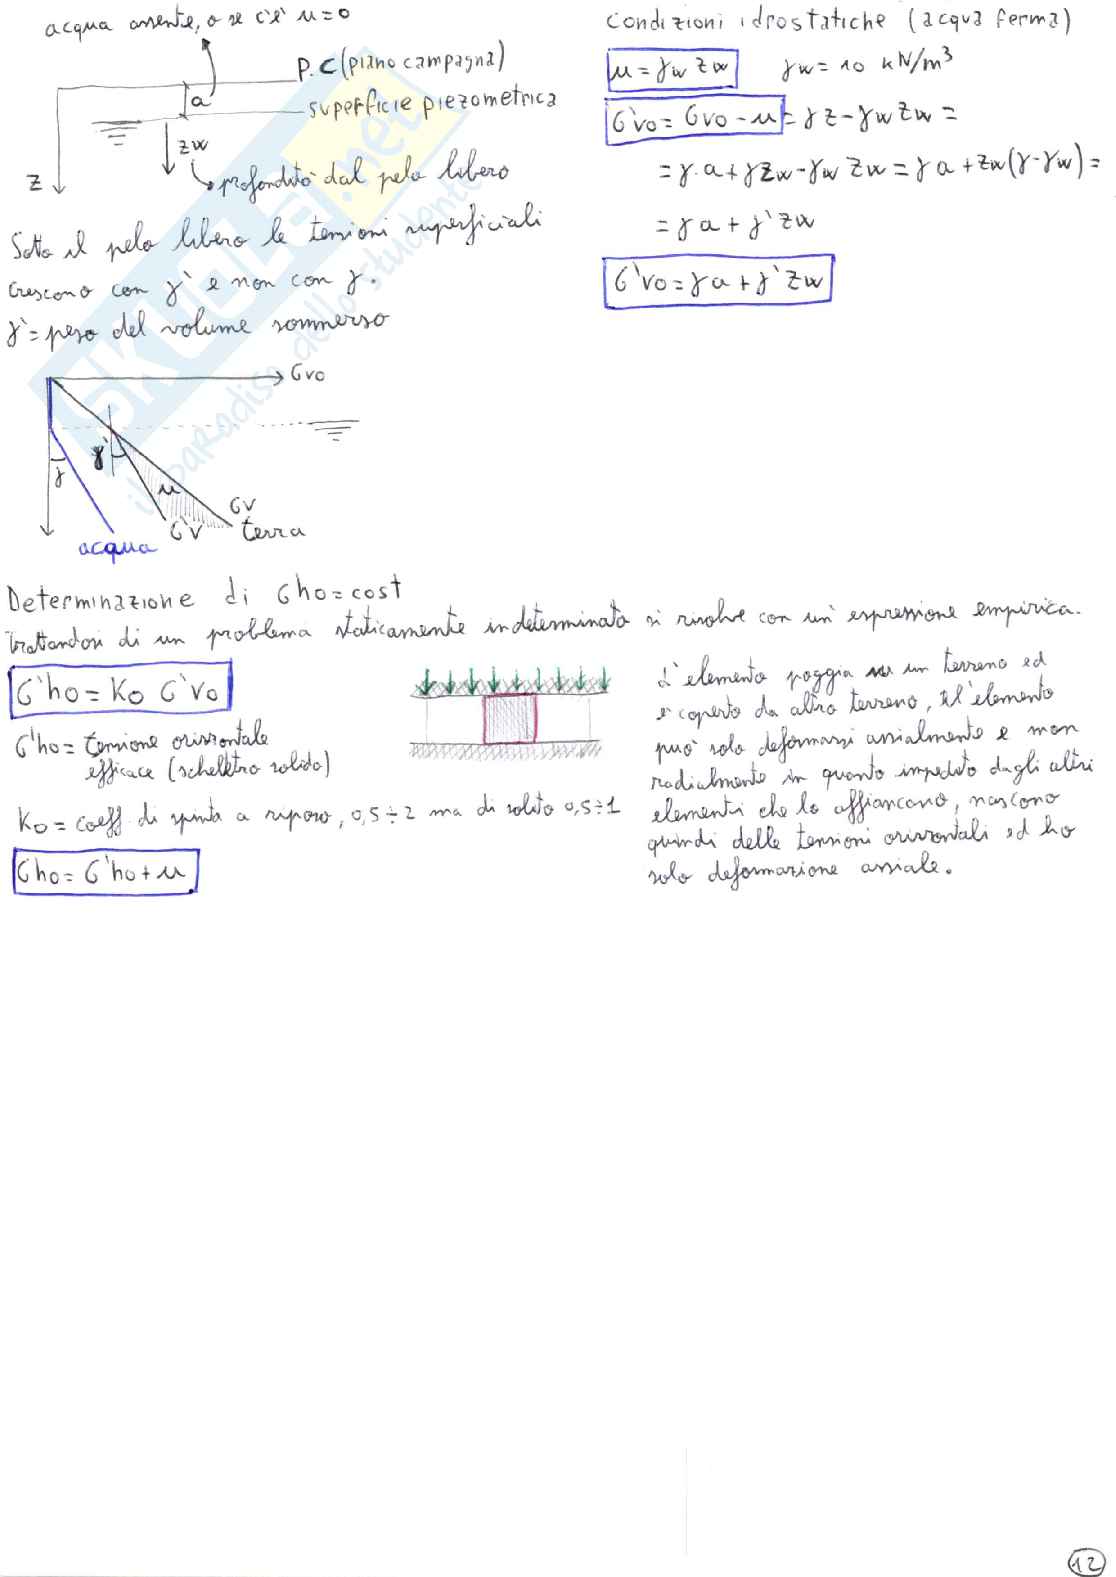 acqua assente, o se c'è u=0
P.C (piano campagna)
a
superficie piezometrica
zw
z
profondità dal pelo libero
Sotto il pelo libero le tensioni superficiali
crescono con γ' e non con γ.
γ'= peso del volume sommerso
condizioni idrostatiche (acqua ferma)
u = γw zw γw = 10 kN/m³
σ'vo = σvo - u = γ z - γw zw =
= γ·a + γ zw - γw zw = γ a + zw(γ-γw) =
= γ a + γ' zw
σ'vo = γ a + γ' zw
σvo
γ
γ'
u
σv
σ'v
terra
acqua
Determinazione di σho = cost
Trattandosi di un problema staticamente indeterminato si risolve con un'espressione empirica.
σ'ho = Ko σ'vo
σ'ho = tensione orizzontale
efficace (scheletro solido)
Ko = coeff. di spinta a riposo, 0,5÷2 ma di solito 0,5÷1
σho = σ'ho + u
L'elemento poggia su un terreno ed
e' coperto da altro terreno, l'elemento
può solo deformarsi assialmente e non
radialmente in quanto impedito dagli altri
elementi che lo affiancano, nascono
quindi delle tensioni orizzontali ed ho
solo deformazione assiale.
SKUOLA.net
il paradiso dello studente
12